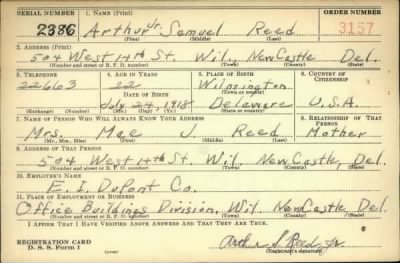 SERIAL NUMBER 1. NAME (Print) ORDER NUMBER
2386 Arthur Jr. Samuel Reed 3157
(First) (Middle) (Last)
2. ADDRESS (Print)
504 West 14th St. Wil, NewCastle Del.
(Number and street or R. F. D. number) (Town) (County) (State)
3. TELEPHONE 4. AGE IN YEARS 5. PLACE OF BIRTH 6. COUNTRY OF CITIZENSHIP
22663 22 Wilmington
DATE OF BIRTH (Town or county)
July 24, 1918 Delaware U.S.A.
(Exchange) (Number) (Mo.) (Day) (Yr.) (State or country)
7. NAME OF PERSON WHO WILL ALWAYS KNOW YOUR ADDRESS 8. RELATIONSHIP OF THAT PERSON
Mrs. Mae J. Reed Mother
(Mr., Mrs., Miss) (First) (Middle) (Last)
9. ADDRESS OF THAT PERSON
504 West 14th St. Wil. NewCastle, Del.
(Number and street or R. F. D. number) (Town) (County) (State)
10. EMPLOYER'S NAME
E. I. DuPont Co.
11. PLACE OF EMPLOYMENT OR BUSINESS
Office Buildings Division, Wil. NewCastle, Del.
(Number and street or R. F. D. number) (Town) (County) (State)
I AFFIRM THAT I HAVE VERIFIED ABOVE ANSWERS AND THAT THEY ARE TRUE.
REGISTRATION CARD
D. S. S. Form 1
Arthur S Reed Jr
(Registrant's signature)